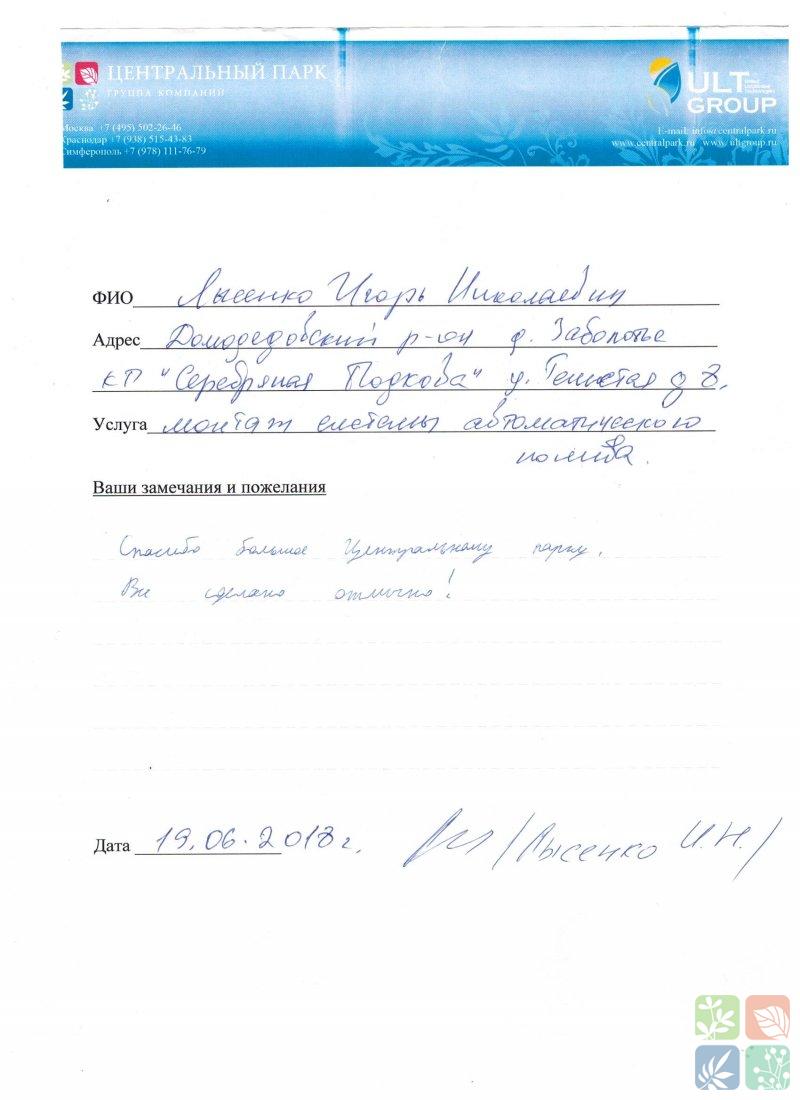 ЦЕНТРАЛЬНЫЙ ПАРК
ГРУППА КОМПАНИЙ
ULT
GROUP
Москва +7 (495) 502-26-46
Краснодар +7 (938) 515-43-83
Симферополь +7 (978) 111-76-79
E-mail: info@centralpark.ru
www.centralpark.ru www.ultgroup.ru
ФИО Лысенко Игорь Николаевич
Адрес Домодедовский р-он д. Заболотье
КП "Серебряная Подкова" у. Тенистая д 8.
Услуга монтаж системы автоматического
полива.
Ваши замечания и пожелания
Спасибо большое Центральному парку.
Все сделано отлично!
Дата 19.06.2018 г. /Лысенко И.Н./